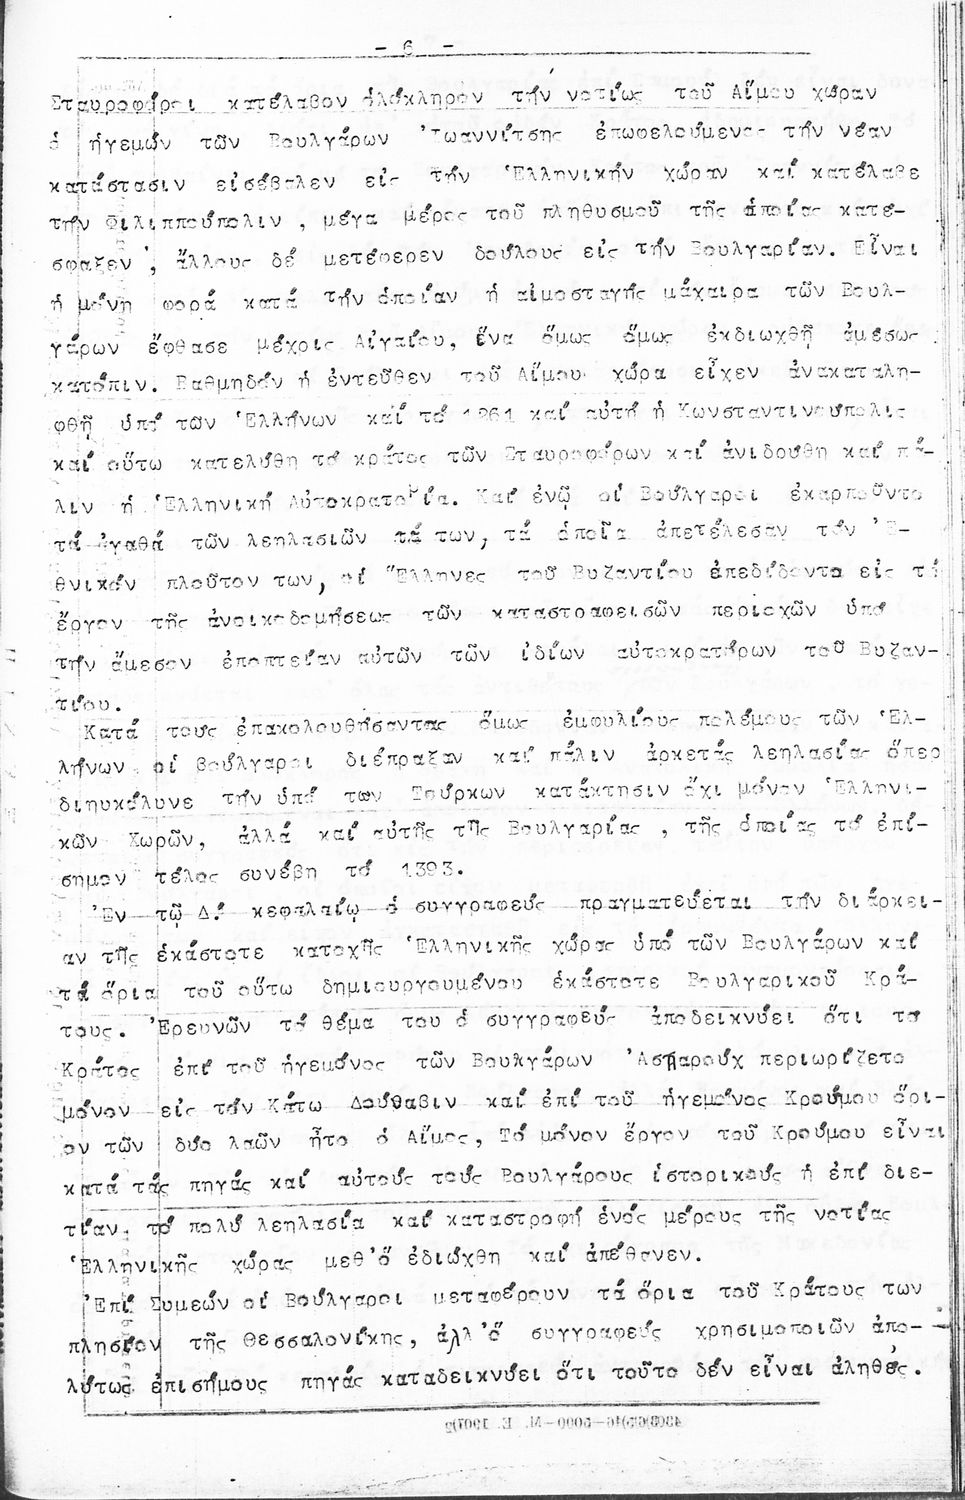 - 6 -
Σταυροφόροι κατέλαβον ὁλόκληρον τήν νοτίως τοῦ Αἵμου χώραν
ὁ ἡγεμών τῶν Βουλγάρων Ἰωαννίτσης ἐπωφελούμενος τήν νέαν
κατάστασιν εἰσέβαλεν εἰς τήν Ἑλληνικήν χώραν καί κατέλαβε
τήν Φιλιππούπολιν , μέγα μέρος τοῦ πληθυσμοῦ τῆς ὁποίας κατέ-
σφαξεν , ἄλλους δέ μετέφερεν δούλους εἰς τήν Βουλγαρίαν. Εἶναι
ἡ μόνη φορά κατά τήν ὁποίαν ἡ αἱμοσταγής μάχαιρα τῶν Βουλ-
γάρων ἔφθασε μέχρις Αἰγαίου, ἕνα ὅμως ὅμως ἐκδιωχθῇ ἀμέσως
κατόπιν. Βαθμηδόν ἡ ἐντεῦθεν τοῦ Αἵμου χώρα εἶχεν ἀνακαταλη-
φθῇ ὑπό τῶν Ἑλλήνων καί τό 1261 καί αὐτή ἡ Κωνσταντινούπολις
καί οὕτω κατελύθη τό κράτος τῶν Σταυροφόρων καί ἀνιδρύθη καί πά-
λιν ἡ Ἑλληνική Αὐτοκρατορία. Καί ἐνῷ οἱ Βούλγαροι ἐκαρποῦντο
τά ἀγαθά τῶν λεηλασιῶν τά των, τά ὁποῖα ἀπετέλεσαν τόν Ἐ-
θνικόν πλοῦτον των, οἱ Ἕλληνες τοῦ Βυζαντίου ἐπεδίδοντο εἰς τό
ἔργον τῆς ἀνοικοδομήσεως τῶν καταστραφεισῶν περιοχῶν ὑπό
τήν ἄμεσον ἐποπτείαν αὐτῶν τῶν ἰδίων αὐτοκρατόρων τοῦ Βυζαν-
τίου.
Κατά τούς ἐπακολουθήσαντας ὅμως ἐμφυλίους πολέμους τῶν Ἑλ-
λήνων οἱ βούλγαροι διέπραξαν καί πάλιν ἀρκετάς λεηλασίας ὅπερ
διηυκόλυνε τήν ὑπό των Τούρκων κατάκτησιν ὄχι μόνον Ἑλληνι-
κῶν Χωρῶν, ἀλλά καί αὐτῆς τῆς Βουλγαρίας , τῆς ὁποίας τό ἐπί-
σημον τέλος συνέβη τό 1393.
Ἐν τῷ Δ. κεφαλαίῳ ὁ συγγραφεύς πραγματεύεται τήν διάρκει-
αν τῆς ἑκάστοτε κατοχῆς Ἑλληνικῆς χώρας ὑπό τῶν Βουλγάρων καί
τά ὅρια τοῦ οὕτω δημιουργουμένου ἑκάστοτε Βουλγαρικοῦ Κρά-
τους. Ἐρευνῶν τό θέμα του ὁ συγγραφεύς ἀποδεικνύει ὅτι το
Κράτος ἐπί τοῦ ἡγεμόνος τῶν Βουλγάρων Ἀσπαρούχ περιωρίζετο
μόνον εἰς τόν Κάτω Δούναβιν καί ἐπί τοῦ ἡγεμόνος Κρούμου ὅρι-
ον τῶν δυο λαῶν ἦτο ὁ Αἵμος, Τό μόνον ἔργον τοῦ Κρούμου εἶναι
κατά τάς πηγάς καί αὐτούς τούς Βουλγάρους ἱστορικούς ἡ ἐπί διε-
τίαν τό πολύ λεηλασία καί καταστροφή ἑνός μέρους τῆς νοτίας
Ἑλληνικῆς χώρας μεθ'ὅ ἐδιώχθη καί ἀπέθανεν.
Ἐπί Συμεών οἱ Βούλγαροι μεταφέρουν τά ὅρια τοῦ Κράτους των
πλησίον τῆς Θεσσαλονίκης, ἀλλ'ὁ συγγραφεύς χρησιμοποιῶν ἀπο-
λύτως ἐπισήμους πηγάς καταδεικνύει ὅτι τοῦτο δέν εἶναι ἀληθές.